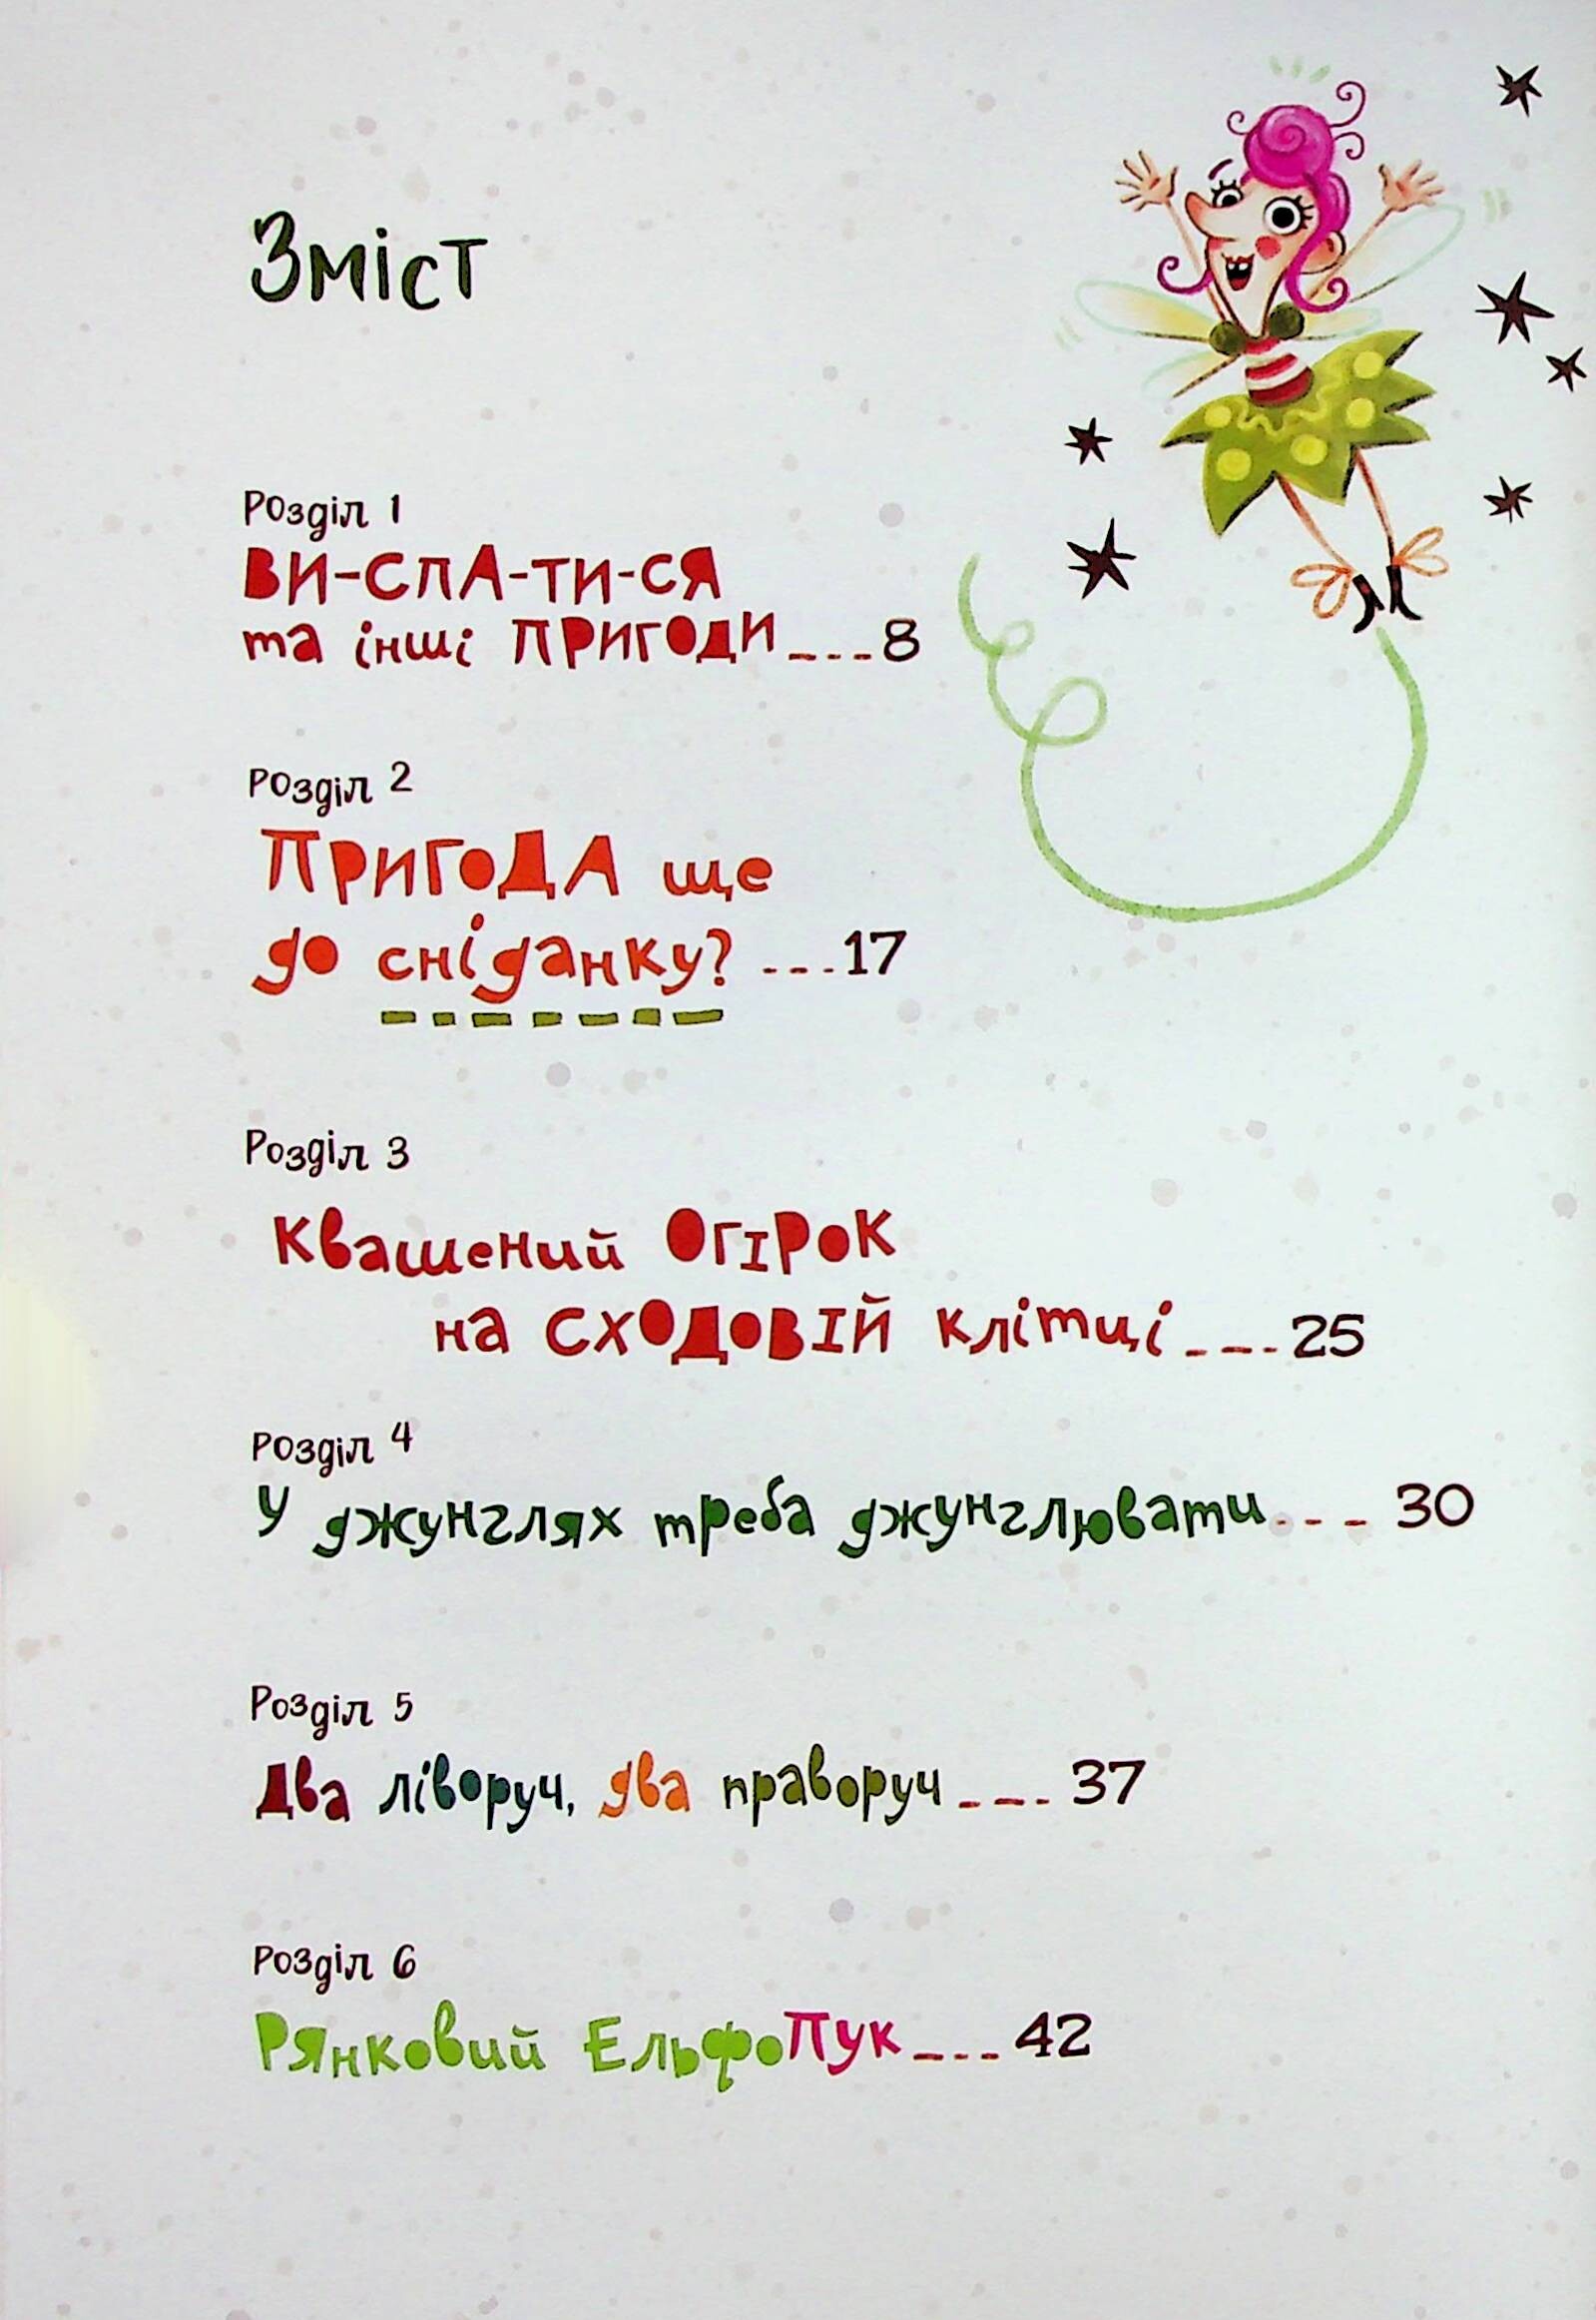 Зміст
Розділ 1
ВИ-СПА-ТИ-СЯ
та інші ПРИГОДИ____8
Розділ 2
ПРИГОДА ще
до сніданку? ----17
Розділ 3
Квашений ОГІРОК
на СХОДОВІЙ клітці____25
Розділ 4
У джунглях треба джунглювати---- 30
Розділ 5
Два ліворуч, два праворуч____ 37
Розділ 6
Рянковий ЕльфоПук____42